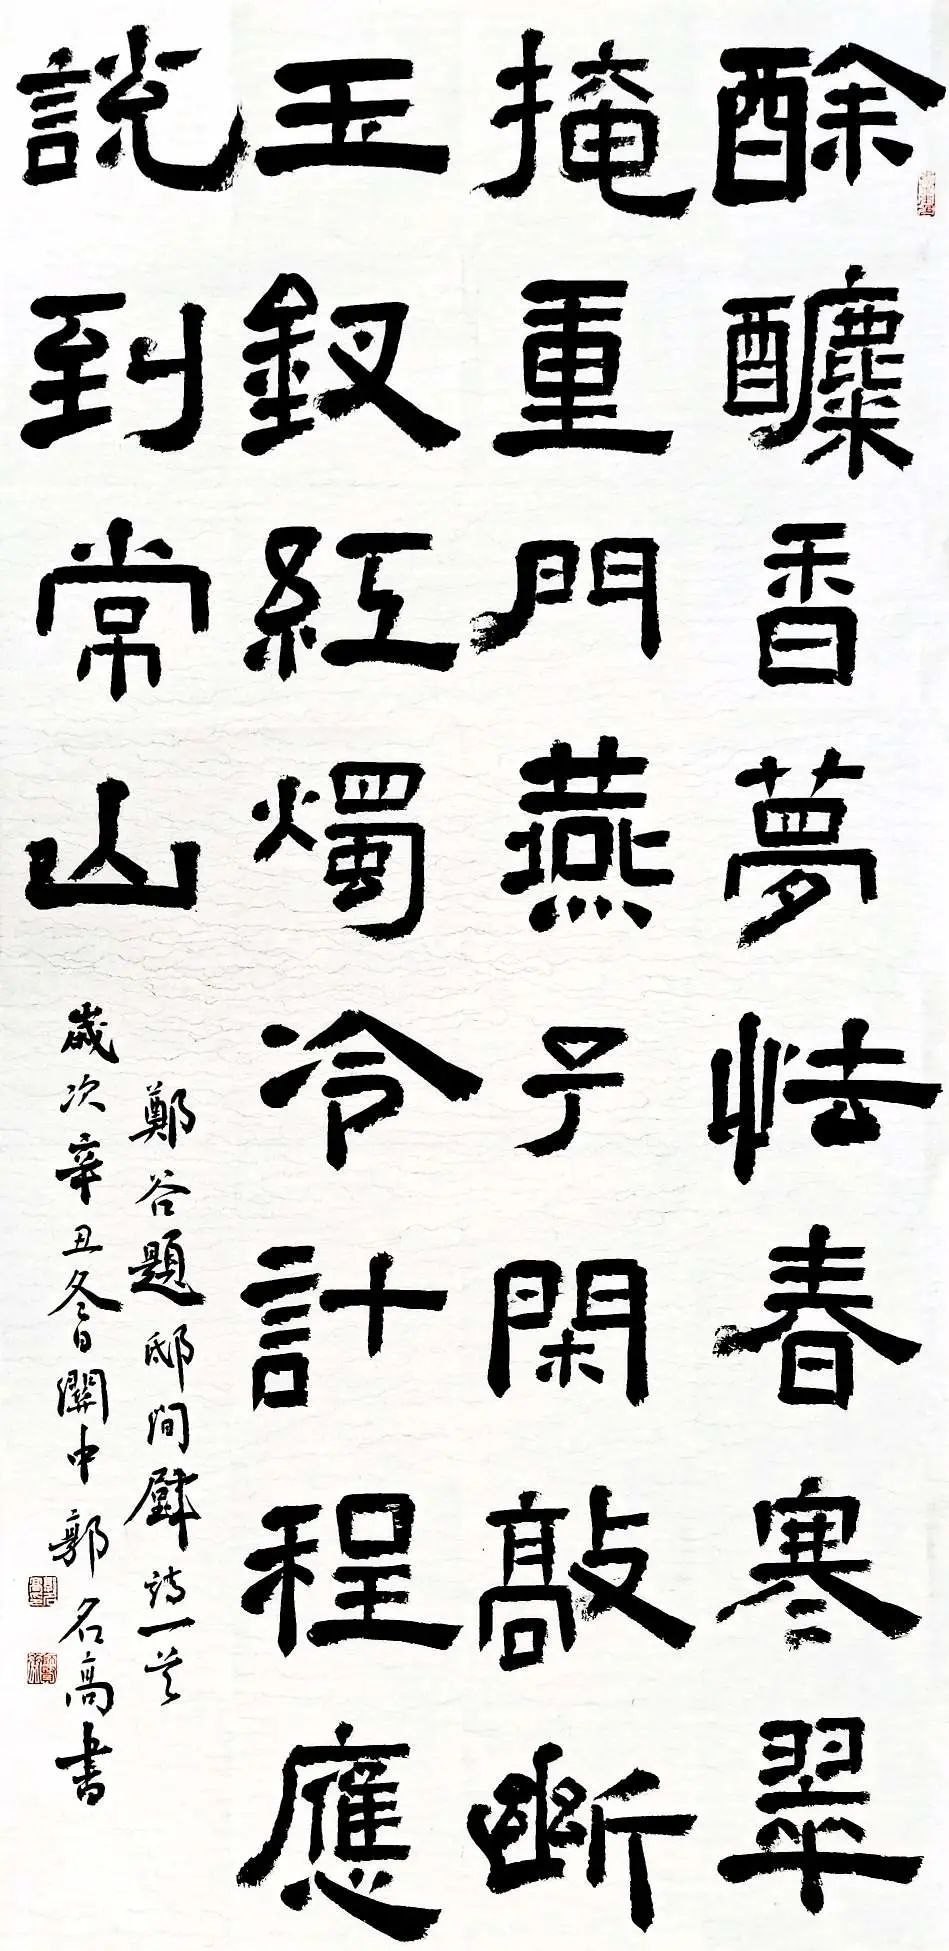 酴醾香夢怯春寒翠
掩重門燕子閑敲斷
玉釵紅燭冷計程應
說到常山
鄭谷題邸間壁詩一首
歲次辛丑冬日關中郭名高書